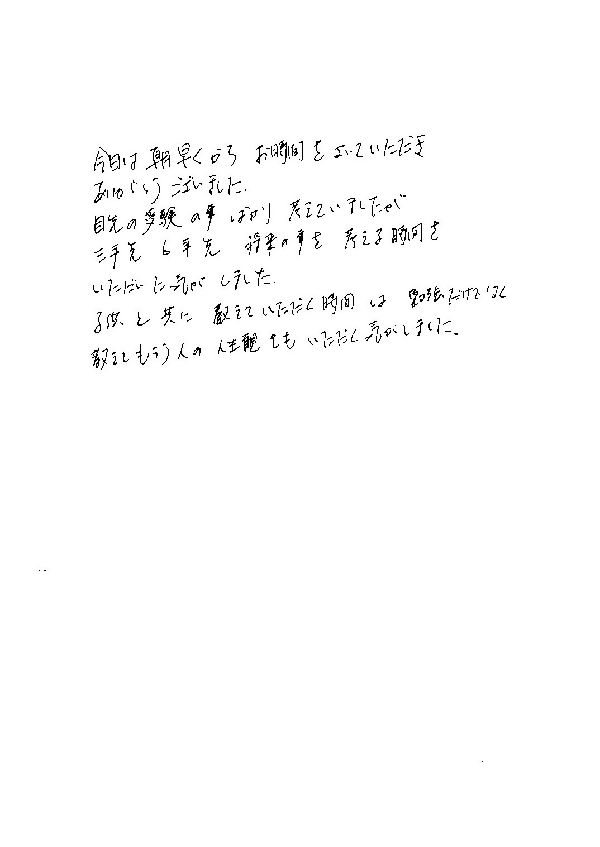 今日は朝早くから お時間をよっていただき
ありがとうございました.
目先の受験の事ばかり考えていましたが
三年先 6年先 将来の事を考える時間を
いただいた気がしました.
子供と共に教えていただく時間は 勉強だけでなく
教えてもらう人の人生観をもいただく気がしました。